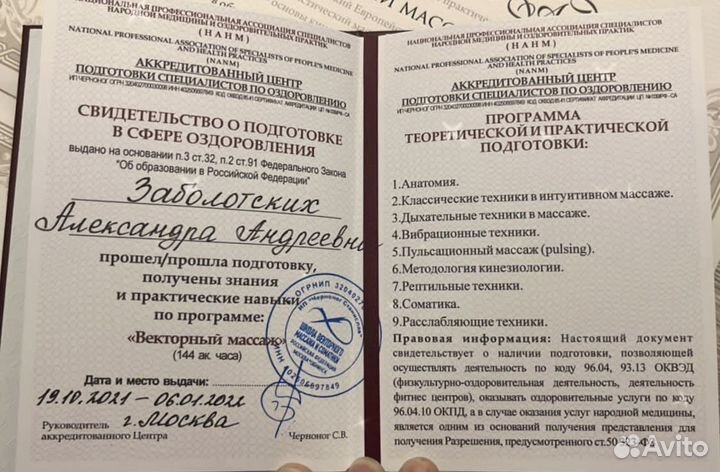 НАЦИОНАЛЬНАЯ ПРОФЕССИОНАЛЬНАЯ АССОЦИАЦИЯ СПЕЦИАЛИСТОВ
НАРОДНОЙ МЕДИЦИНЫ И ОЗДОРОВИТЕЛЬНЫХ ПРАКТИК
( Н А Н М )
NATIONAL PROFESSIONAL ASSOCIATION OF SPECIALISTS OF PEOPLE'S MEDICINE
AND HEALTH PRACTICES
(NANM)
АККРЕДИТОВАННЫЙ ЦЕНТР
ПОДГОТОВКИ СПЕЦИАЛИСТОВ ПО ОЗДОРОВЛЕНИЮ
СВИДЕТЕЛЬСТВО О ПОДГОТОВКЕ
В СФЕРЕ ОЗДОРОВЛЕНИЯ
выдано на основании п.3 ст.32, п.2 ст.91 Федерального Закона
"Об образовании в Российской Федерации"
Заболотских
Александра Андреевна
прошел/прошла подготовку,
получены знания
и практические навыки
по программе:
«Векторный массаж»
(144 ак. часа)
Дата и место выдачи:
19.10.2021 - 06.01.2022
г. Москва
Руководитель
аккредитованного Центра
Черноног С.В.
ШКОЛА ВЕКТОРНОГО
МАССАЖА И СОМАТИКИ
РОССИЙСКАЯ ФЕДЕРАЦИЯ
НАЦИОНАЛЬНАЯ ПРОФЕССИОНАЛЬНАЯ АССОЦИАЦИЯ СПЕЦИАЛИСТОВ
НАРОДНОЙ МЕДИЦИНЫ И ОЗДОРОВИТЕЛЬНЫХ ПРАКТИК
( Н А Н М )
NATIONAL PROFESSIONAL ASSOCIATION OF SPECIALISTS OF PEOPLE'S MEDICINE
AND HEALTH PRACTICES
(NANM)
АККРЕДИТОВАННЫЙ ЦЕНТР
ПОДГОТОВКИ СПЕЦИАЛИСТОВ ПО ОЗДОРОВЛЕНИЮ
ПРОГРАММА
ТЕОРЕТИЧЕСКОЙ И ПРАКТИЧЕСКОЙ
ПОДГОТОВКИ:
1.Анатомия.
2.Классические техники в интуитивном массаже.
3.Дыхательные техники в массаже.
4.Вибрационные техники.
5.Пульсационный массаж (pulsing).
6.Методология кинезиологии.
7.Рептильные техники.
8.Соматика.
9.Расслабляющие техники.
Правовая информация: Настоящий документ
свидетельствует о наличии подготовки, позволяющей
осуществлять деятельность по коду 96.04, 93.13 ОКВЭД
(физкультурно-оздоровительная деятельность, деятельность
фитнес центров), оказывать оздоровительные услуги по коду
96.04.10 ОКПД, а в случае оказания услуг народной медицины,
является одним из оснований получения представления для
получения Разрешения, предусмотренного ст.50 323-ФЗ
Avito